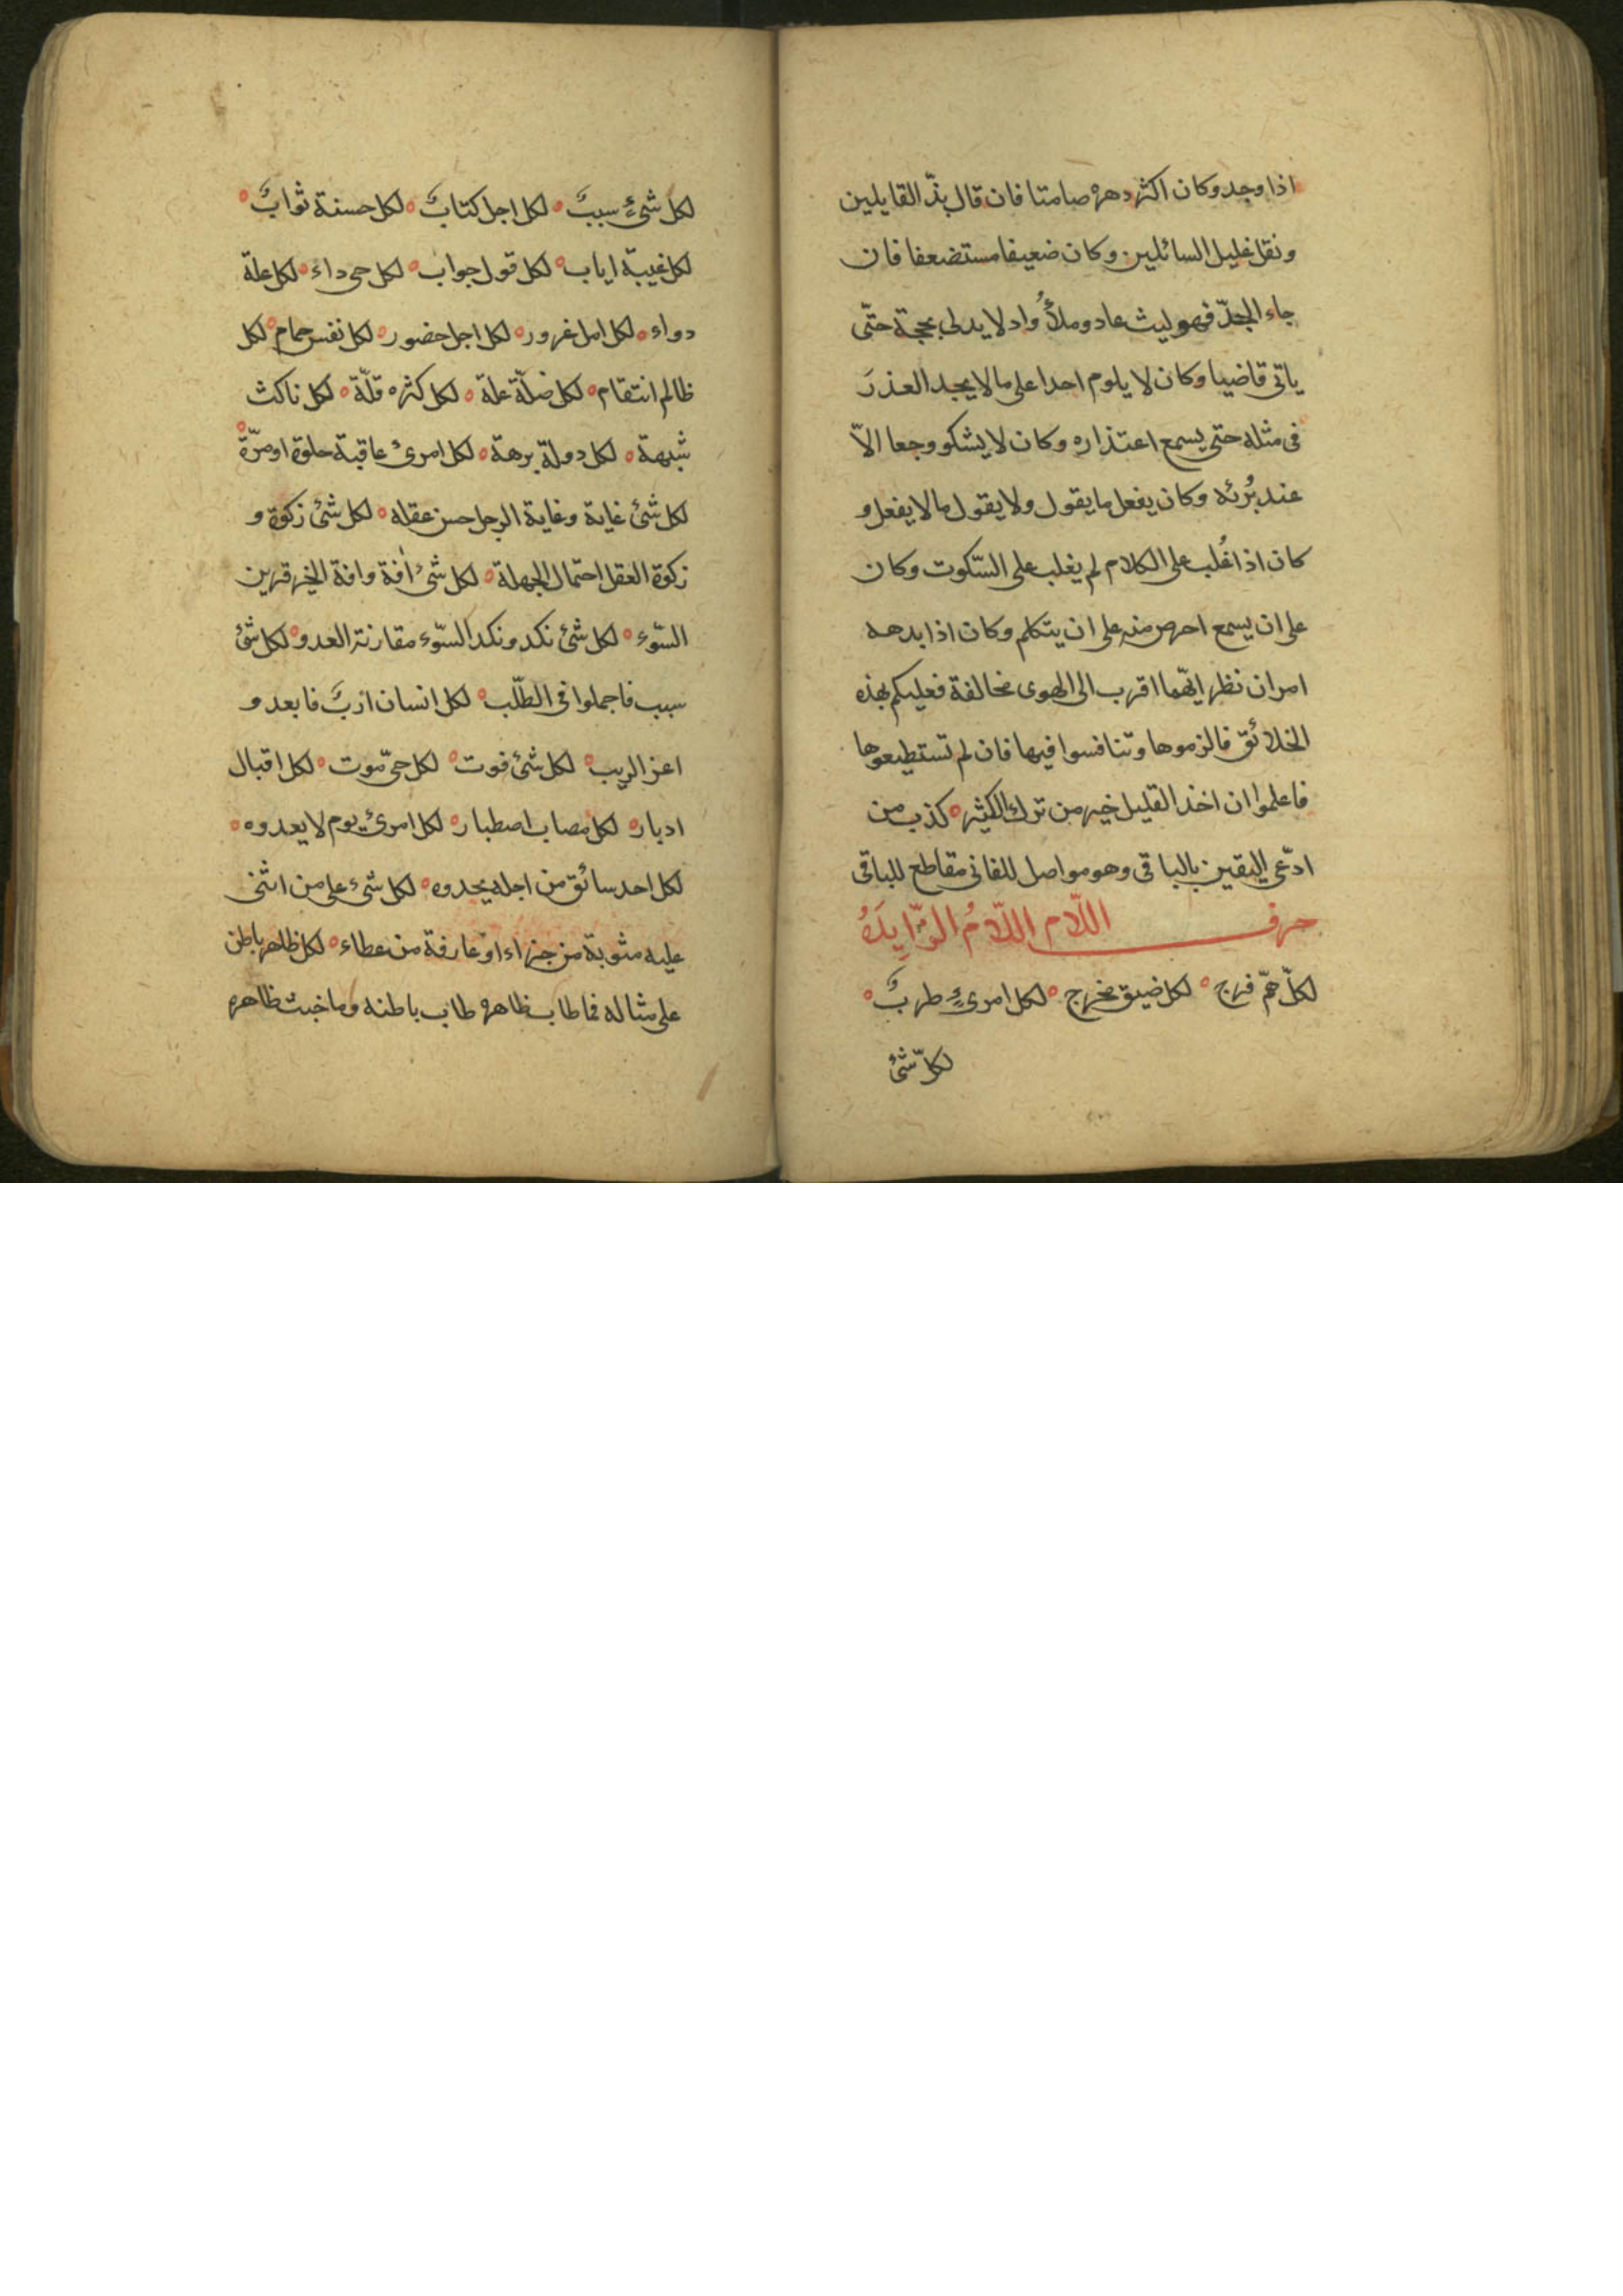 اذا وجد وكان اكثر دهره صامتا فان قال بذّ القايلين
ونقل غليل السائلين وكان ضعيفا مستضعفا فان
جاء الجدّ فهو ليث عاد وملأُ واد لا يدلى بحجة حتّى
ياتى قاضيا وكان لا يلوم احدا على ما لا يجد العذرَ
فى مثله حتى يسمع اعتذاره وكان لا يشكو وجعا الاّ
عند بُرئه وكان يفعل ما يقول ولا يقول ما لا يفعل و
كان اذا غُلب على الكلام لم يغلب على السّكوت وكان
على ان يسمع احرص منه على ان يتكلم وكان اذا بدهه
امران نظر ايّهما اقرب الى الهوى فخالفة فعليكم بهذه
الخلائق فالزموها وتنافسوا فيها فان لم تستطيعوها
فاعلموا ان اخذ القليل خير من ترك الكثير ه كذب من
ادّعى اليقين بالباقى وهو مواصل للفانى مقاطع للباقى
حرف اللّام اللّامُ الزّايدَةُ
لكلّ همّ فرج ه لكل ضيق مخرج ه لكل امرئٍ طربٌ ه
لكلّ شئ
لكل شئٍ سببٌ ه لكل اجل كتابٌ ه لكل حسنة ثوابٌ ه
لكل غيبة اياب ه لكل قول جواب ه لكل حى داء ه لكل علة
دواء ه لكل امل غرور ه لكل اجل حضور ه لكل نفس حمام ه لكل
ظالم انتقام ه لكل ضلّة علة ه لكل كثره قلّة ه لكل ناكث
شبهة ه لكل دولة برهة ه لكل امرئ عاقبة حلوة او مرّة ه
لكل شئ غاية وغاية الرجل حسن عقله ه لكل شئ زكوة و
زكوة العقل احتمال الجهلة ه لكل شئ افة وافة الخير قرين
السّوء ه لكل شئ نكد ونكد السّوء مقارنة العدو ه لكل شئ
سبب فاجملوا فى الطّلب ه لكل انسان اربٌ فابعدو
اعز الريب ه لكل شئ فوت ه لكل حىّ موت ه لكل اقبال
ادبار ه لكل مصاب اصطبار ه لكل امرئٍ يوم لا يعدوه ه
لكل احد سائق من اجله يحدوه ه لكل شئ على من اثنى
عليه مثوبة من جزاء او عارفة من عطاء ه لكل ظاهر باطن
على مثاله فما طاب ظاهره طاب باطنه وما خبث ظاهره